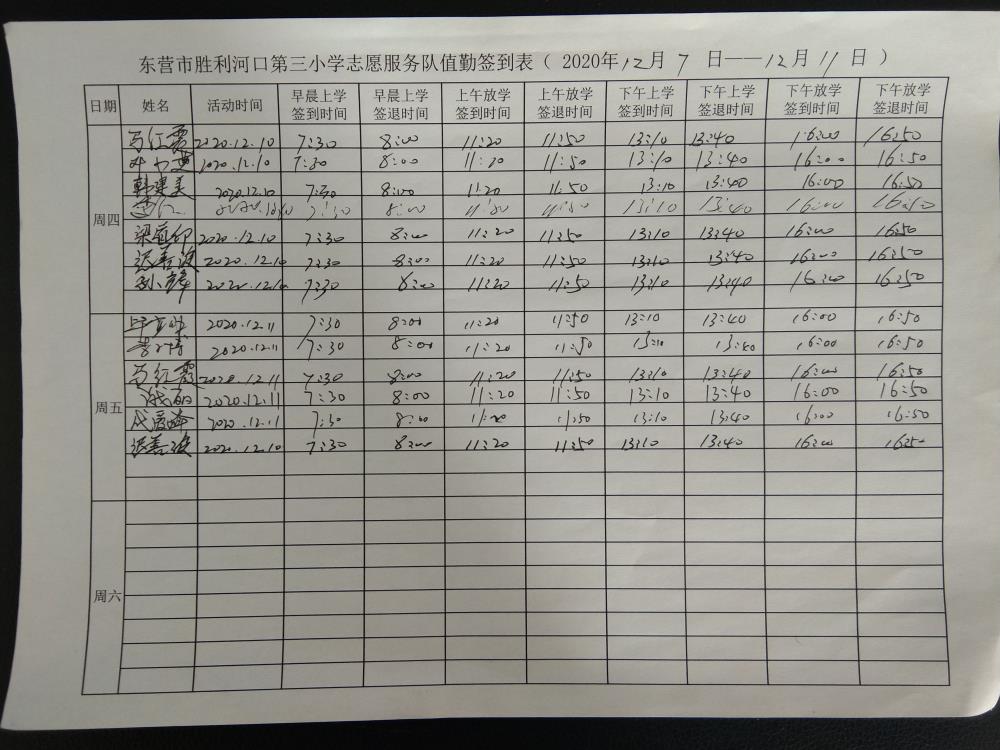 东营市胜利河口第三小学志愿服务队值勤签到表（ 2020年12月7日——12月11日 ）
日期 姓名 活动时间 早晨上学签到时间 早晨上学签退时间 上午放学签到时间 上午放学签退时间 下午上学签到时间 下午上学签退时间 下午放学签到时间 下午放学签退时间
周四
马红霞 2020.12.10 7:30 8:00 11:20 11:50 13:10 13:40 16:00 16:50
2020.12.10 7:30 8:00 11:20 11:50 13:10 13:40 16:00 16:50
韩建美 2020.12.10 7:30 8:00 11:20 11:50 13:10 13:40 16:00 16:50
7:30 8:00 11:20 11:50 13:10 13:40 16:00 16:50
2020.12.10 7:30 8:00 11:20 11:50 13:10 13:40 16:00 16:50
张善波 2020.12.10 7:30 8:00 11:20 11:50 13:10 13:40 16:00 16:50
2020.12.10 7:30 8:00 11:20 11:50 13:10 13:40 16:00 16:50
周五
2020.12.11 7:30 8:00 11:20 11:50 13:10 13:40 16:00 16:50
2020.12.11 7:30 8:00 11:20 11:50 13:10 13:40 16:00 16:50
马红霞 2020.12.11 7:30 8:00 11:20 11:50 13:10 13:40 16:00 16:50
2020.12.11 7:30 8:00 11:20 11:50 13:10 13:40 16:00 16:50
2020.12.11 7:30 8:00 11:20 11:50 13:10 13:40 16:00 16:50
张善波 2020.12.10 7:30 8:00 11:20 11:50 13:10 13:40 16:00 16:50
周六